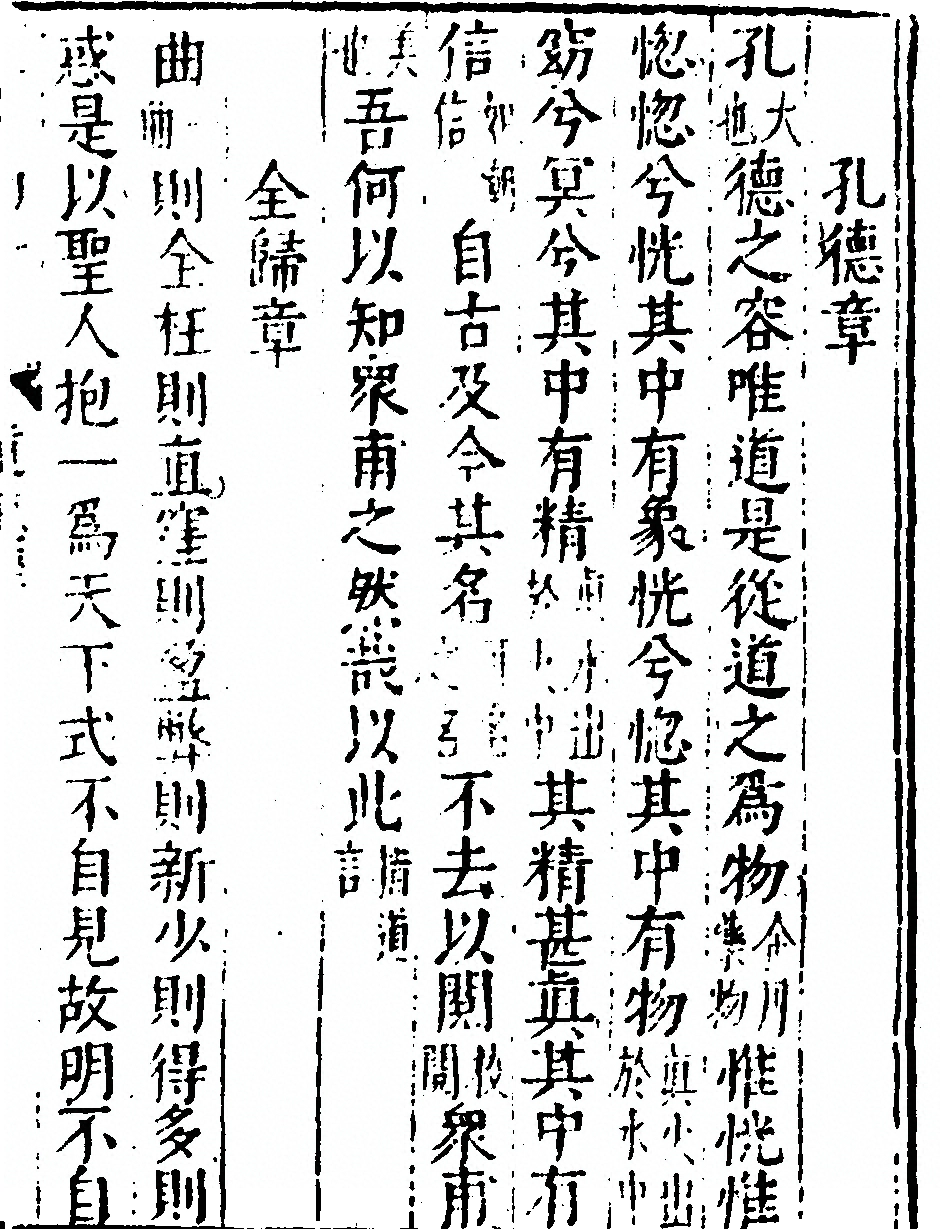 孔德章
孔大也德之容唯道是從道之爲物物惟恍惟
惚惚兮恍其中有象恍兮惚其中有物真火出於水中
窈兮冥兮其中有精真水出於火中其精甚真其中有
信信自古及今其名不去以閱衆甫
美也吾何以知衆甫之然哉以此道言
全歸章
曲則全枉則直窪則盈弊則新少則得多則
惑是以聖人抱一爲天下式不自見故明不自